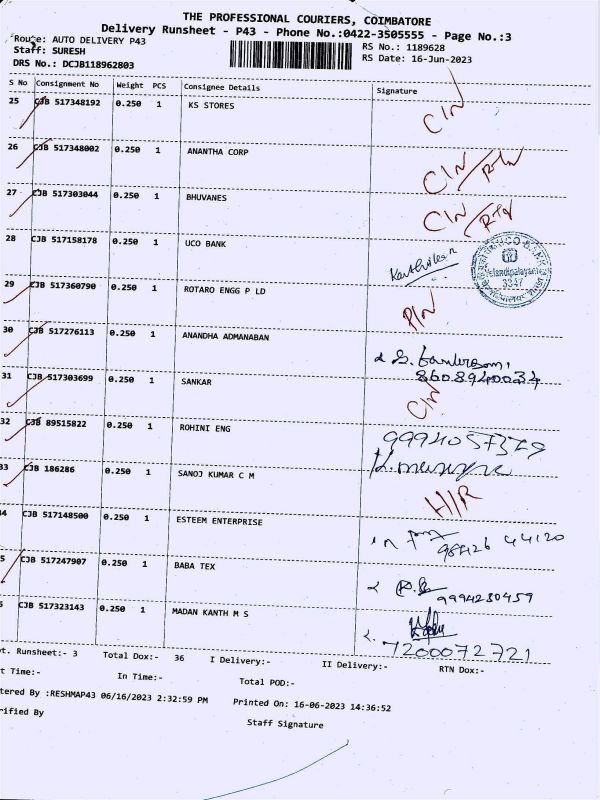 THE PROFESSIONAL COURIERS, COIMBATORE
Delivery Runsheet - P43 - Phone No.:0422-3505555 - Page No.:3
Route: AUTO DELIVERY P43
RS No.: 1189628
Staff: SURESH
RS Date: 16-Jun-2023
DRS No.: DCJB118962803
S No Consignment No Weight PCS Consignee Details Signature
25 CJB 517348192 0.250 1 KS STORES CIN
26 CJB 517348002 0.250 1 ANANTHA CORP CIN/RTN
27 CJB 517303044 0.250 1 BHUVANES CIN/RTN
28 CJB 517158178 0.250 1 UCO BANK
UCO BANK
3347
29 CJB 517360790 0.250 1 ROTARO ENGG P LD P/N
30 CJB 517276113 0.250 1 ANANDHA ADMANABAN
8608940034
31 CJB 517303699 0.250 1 SANKAR CIN
32 CJB 89515822 0.250 1 ROHINI ENG
9994057379
33 CJB 186286 0.250 1 SANOJ KUMAR C M H/R
4 CJB 517148500 0.250 1 ESTEEM ENTERPRISE
98426 44120
5 CJB 517247907 0.250 1 BABA TEX
9994230459
CJB 517323143 0.250 1 MADAN KANTH M S
7200072721
t. Runsheet:- 3 Total Dox:- 36 I Delivery:- II Delivery:- RTN Dox:-
t Time:- In Time:- Total POD:-
tered By :RESHMAP43 06/16/2023 2:32:59 PM Printed On: 16-06-2023 14:36:52
rified By Staff Signature